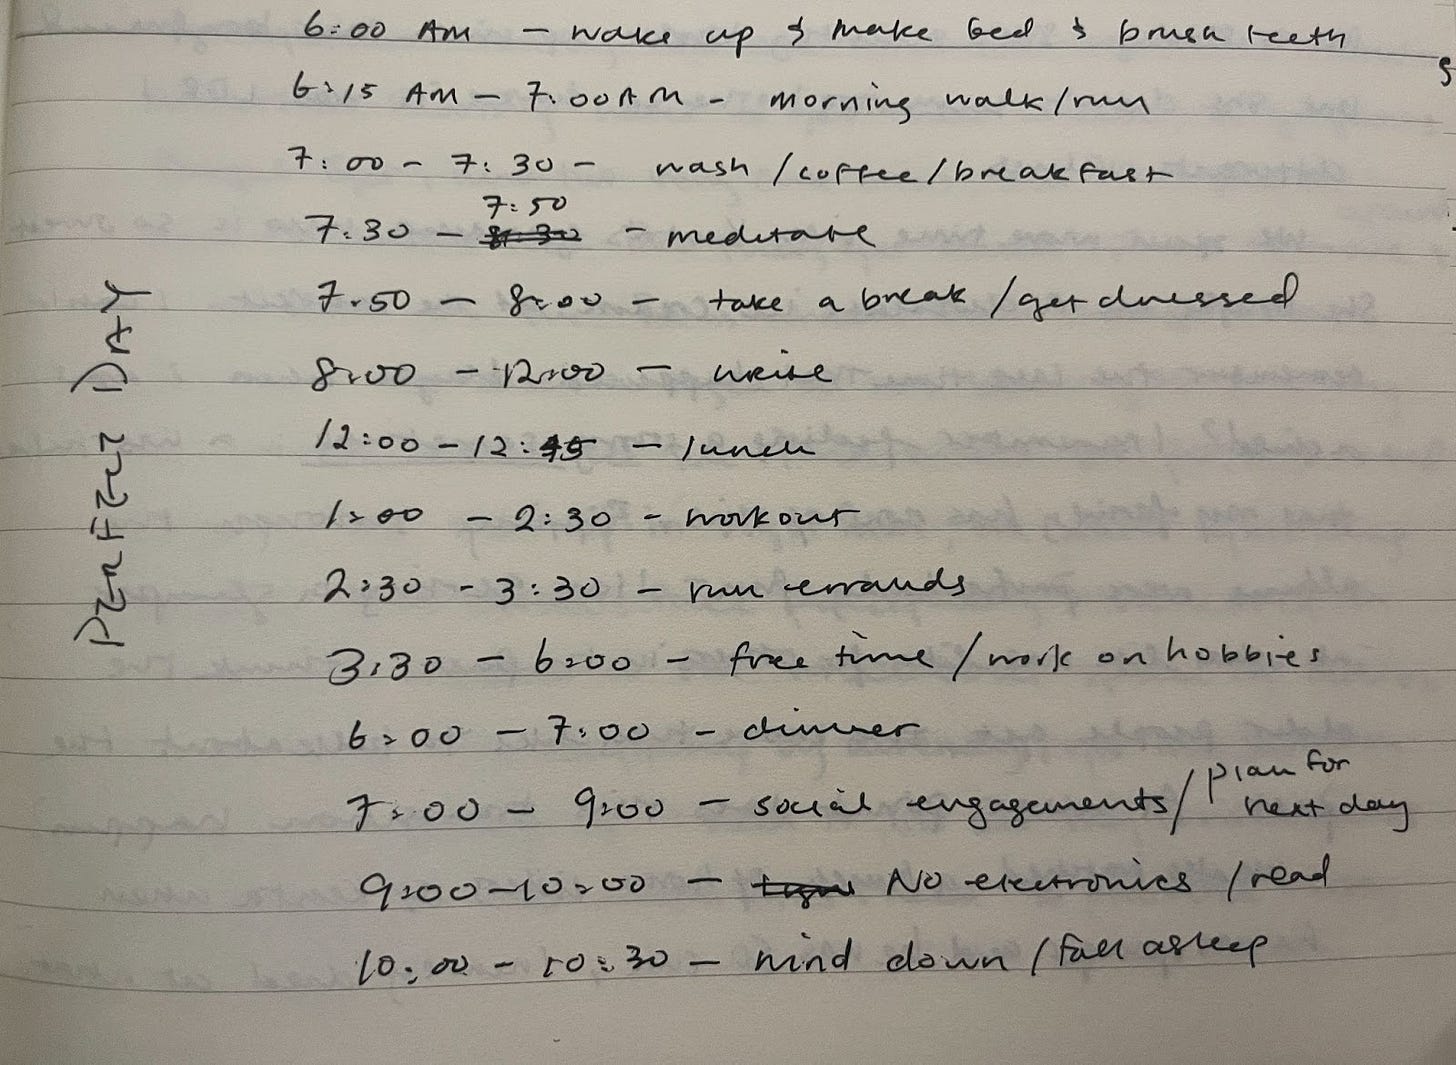 6:00 AM - wake up & make bed & brush teeth
6:15 AM - 7:00 AM - morning walk/run
7:00 - 7:30 - wash/coffee/breakfast
7:50
7:30 - - meditate
7:50 - 8:00 - take a break/get dressed
8:00 - 12:00 - write
12:00 - 12:45 - lunch
1:00 - 2:30 - workout
2:30 - 3:30 - run errands
3:30 - 6:00 - free time/work on hobbies
6:00 - 7:00 - dinner
7:00 - 9:00 - social engagements/plan for
next day
9:00 - 10:00 - No electronics/read
10:00 - 10:30 - wind down/fall asleep
PERFECT DAY